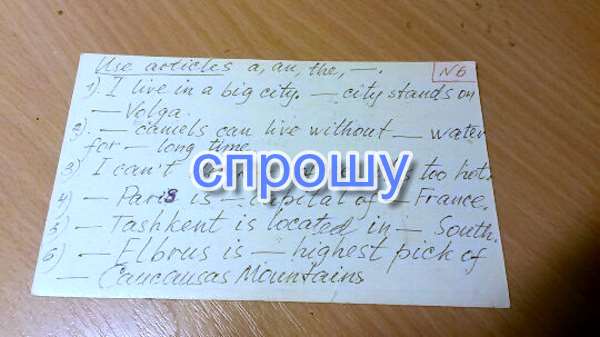 Use articles a, an, the, —.
N6
1) I live in a big city. — city stands on
— Volga.
2). — camels can live without — water
for — long time
3) I can't too hot.
4) — Paris is — capital of — France.
5) — Tashkent is located in — South.
6) — Elbrus is — highest pick of
— Caucausas Mountains
спрошу